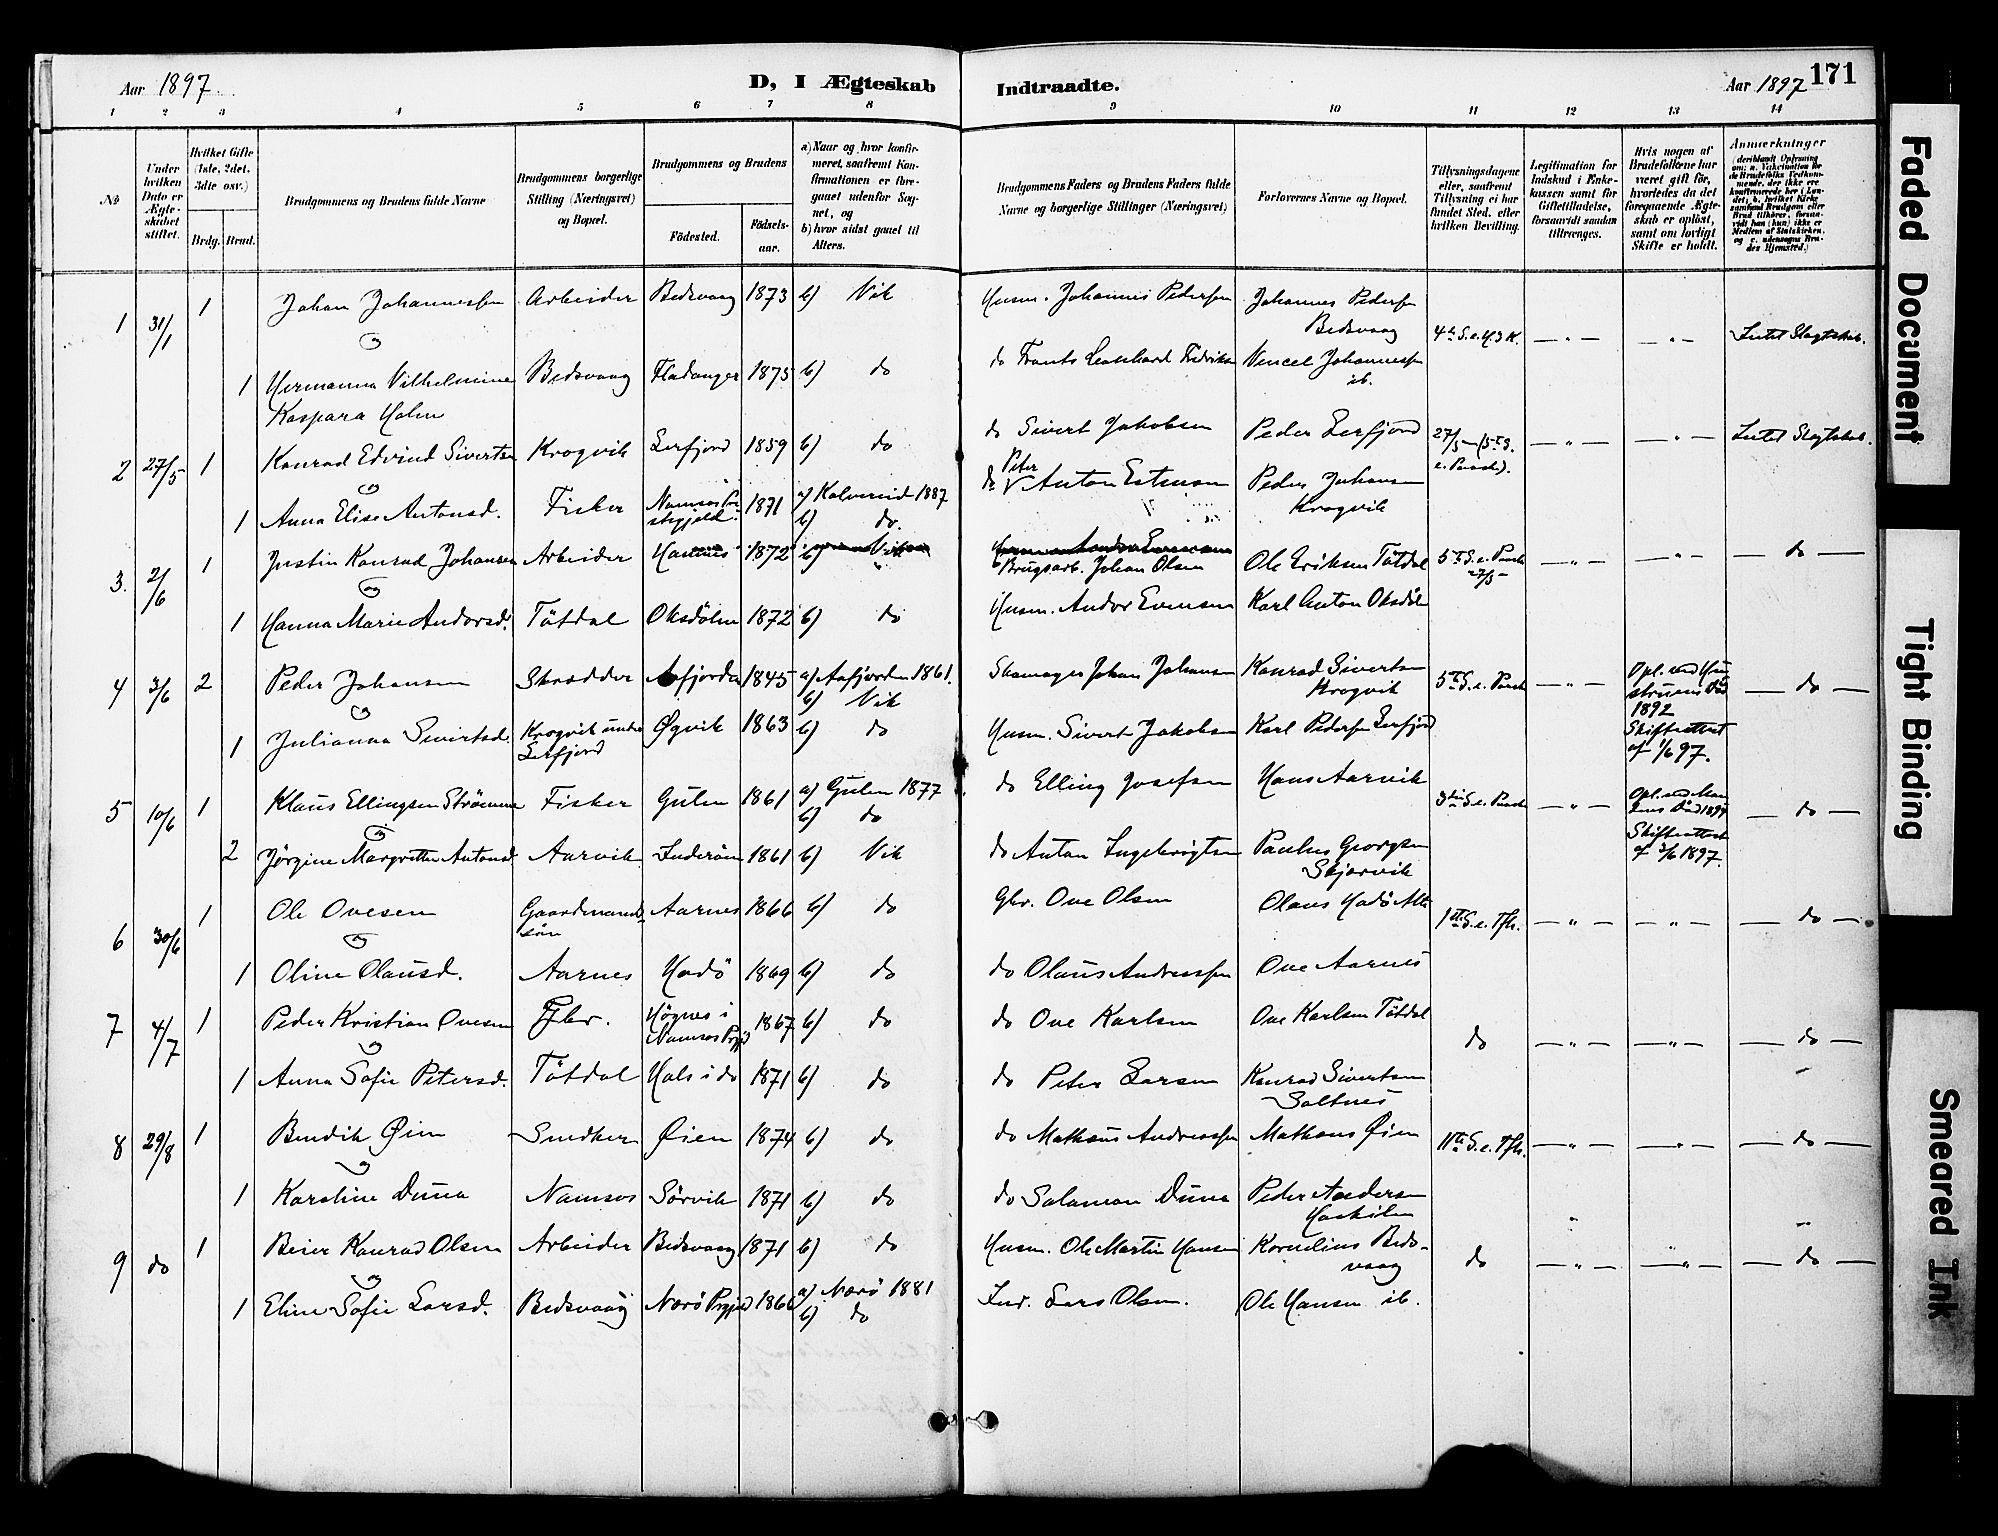 Aar 1897. D, I Ægteskab Indtraadte. Aar 1897 171
1 2 3 4 5 6 7 8 9 10 11 12 13 14
No
Under hvilken Dato er Ægteskabet stiftet.
Hvilket Gifte (1ste, 2det, 3die osv.)
Brdg. Brud.
Brudgommens og Brudens fulde Navne
Brudgommens borgerlige Stilling (Næringsvei) og Bopæl.
Brudgommens og Brudens
Födested.
Födsels-aar.
a) Naar og hvor konfirmeret, saafremt Konfirmationen er foregaaet udenfor Sognet, og
b) hvor sidst gaaet til Alters.
Brudgommens Faders og Brudens Faders fulde Navne og borgerlige Stillinger (Næringsvei)
Forlovernes Navne og Bopæl.
Tillysningsdagene eller, saafremt Tillysning ei har fundet Sted, efter hvilken Bevilling.
Legitimation for Indskud i Enkekassen samt for Giftetilladelse, forsaavidt saadan tiltrænges.
Hvis nogen af Brudefolkene har været gift för, hvorledes da det foregaaende Ægteskab er oplöst, samt om lovligt Skifte er holdt.
Anmærkninger
1 31/1 1 Johan Johannessen Arbeider Bedsvaag 1873 b) Vik Husm. Johannes Pedersen Johannes Pedersen Bedsvaag 4de S. e. H. 3 K. — " — — " — Intet Slagtskab.
1 Hermanna Vilhelmine Kaspara Holm Bedsvaag Fladanger 1875 b) do do Frants Leonhard Fredriksen Vencel Johannessen ib.
2 27/5 1 Konrad Edvind Sivertsen Krogvik Lerfjord 1859 b) do do Sivert Jakobsen Peder Lerfjord 27/5 — (5te S. e. Paaske). — " — — " — Intet Slagtskab.
1 Anna Elise Antonsd. Fisker Namsos Prestegjeld 1871 a) Kolvereid 1887 b) do. do Peter Anton Estensen Peder Johansen Krogvik
3. 2/6 1 Justin Konrad Johansen Arbeider 1872 b) Brugsarb. Johan Olsen Ole Eriksen Tötdal 5te S. e. Paaske 27/5 — — " — — " — — do —
1 Hanna Marie Andorsd. Tötdal Oksdölen 1872 b) do Husm. Andor Evensen Karl Anton Oksdöl
4 3/6 2 Peder Johansen Skrædder Aafjorden 1845 a) Aafjorden 1861. b) Vik Skomager Johan Johansen Konrad Sivertsen Krogvik 5te S. e. Paaske — " — Opl. ved Hustruens Död 1892 Skifteattest af 1/6 97. — do —
1 Julianna Sivertsd. Krogvik under Lerfjord Øgvik 1863 b) do Husm. Sivert Jakobsen Karl Pedersen Lerfjord
5 10/6 1 Klaus Ellingsen Strömme Fisker Gulen 1861 a) Gulen 1877 b) do do Elling Josefsen Hans Aarvik 3die S. e. Paaske — " — Opl. ved Mandens Död Skifteattest af 3/6 1897. — do —
2 Jörgine Margrethe Antonsd. Aarvik Inderöen 1861 b) Vik do Anton Ingebrigtsen Paulus Georgsen Skjærvik
6 30/6 1 Ole Ovesen Gaardmands-sön Aarnes 1866 b) do Gbr. Ove Olsen Olaus Hadö 1ste S. e. Tfh. — " — — " — — do —
1 Oline Olausd. Aarnes Hadö 1869 b) do do Olaus Andreassen Ove Aarnes
7 4/7 1 Peder Kristian Ovesen Gbr. Högnes i Namsos Prgjd 1867 b) do do Ove Karlsen Ove Karlsen Tötdal do — " — — " — — do —
1 Anna Sofie Petersd. Tötdal Hals i do 1871 b) do do Peter Larsen Konrad Sivertsen Saltnes
8 29/8 1 Bendik Øien Snedker Øien 1874 b) do do Mathæus Andreassen Mathæus Øien 11te S. e. Tfh. — " — — " — — do —
1 Karoline Duna Namsos Sörvik 1871 b) do do Salamon Duna Peder Andersen
9 do 1 Beier Konrad Olsen Arbeider Bedsvaag 1871 b) do Husm. Ole Martin Hansen Kornelius Bedsvaag do — " — — " — — do —
1 Eline Sofie Larsd. Bedsvaag Nærö Prgjd 1866 a) Nærö 1881 b) do Ind. Lars Olsen. Ole Hansen ib.
Faded Document
Tight Binding
Smeared Ink